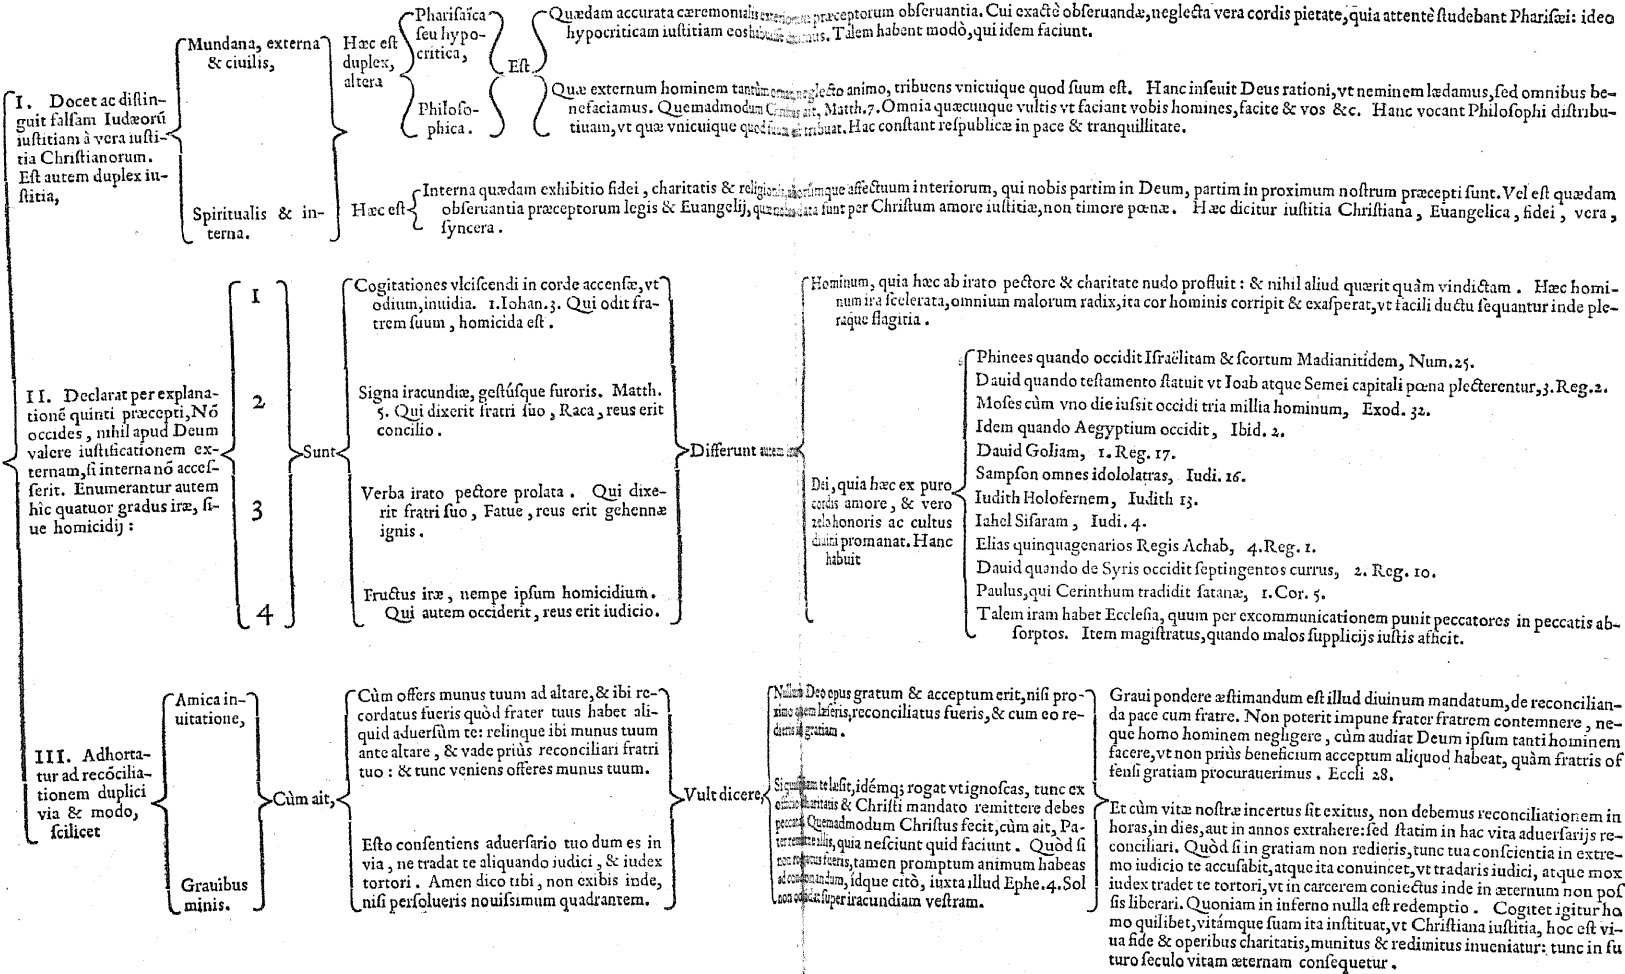 I. Docet ac distin-
guit falsam Iudæorū
iustitiam à vera iusti-
tia Christianorum.
Est autem duplex iu-
stitia,
Mundana, externa
& ciuilis,
Hæc est
duplex,
altera
Pharisaïca
seu hypo-
critica,
Philoso-
phica.
Est
Quædam accurata cæremonialis præceptorum obseruantia. Cui exactè obseruandæ, neglecta vera cordis pietate, quia attentè studebant Pharisæi: ideo
hypocriticam iustitiam eos Talem habent modò, qui idem faciunt.
Quæ externum hominem tantùm neglecto animo, tribuens vnicuique quod suum est. Hanc inseuit Deus rationi, vt neminem lædamus, sed omnibus be-
nefaciamus. Quemadmodum ait, Matth. 7. Omnia quæcunque vultis vt faciant vobis homines, facite & vos &c. Hanc vocant Philosophi distribu-
tiuam, vt quæ vnicuique quod tribuat. Hac constant respublicæ in pace & tranquillitate.
Spiritualis & in-
terna.
Hæc est
Interna quædam exhibitio fidei, charitatis & religionis, affectuum interiorum, qui nobis partim in Deum, partim in proximum nostrum præcepti sunt. Vel est quædam
obseruantia præceptorum legis & Euangelij, sunt per Christum amore iustitiæ, non timore pœnæ. Hæc dicitur iustitia Christiana, Euangelica, fidei, vera,
syncera.
II. Declarat per explana-
tionē quinti præcepti, Nō
occides, nihil apud Deum
valere iustificationem ex-
ternam, si interna nō acces-
serit. Enumerantur autem
hîc quatuor gradus iræ, si-
ue homicidij:
1
2
3
4
Sunt
Cogitationes vlciscendi in corde accensæ, vt
odium, inuidia. 1. Iohan. 3. Qui odit fra-
trem suum, homicida est.
Signa iracundiæ, gestúsque furoris. Matth.
5. Qui dixerit fratri suo, Raca, reus erit
concilio.
Verba irato pectore prolata. Qui dixe-
rit fratri suo, Fatue, reus erit gehennæ
ignis.
Fructus iræ, nempe ipsum homicidium.
Qui autem occiderit, reus erit iudicio.
Differunt autem
Hominum, quia hæc ab irato pectore & charitate nudo profluit: & nihil aliud quærit quàm vindictam. Hæc homi-
num ira scelerata, omnium malorum radix, ita cor hominis corripit & exasperat, vt facili ductu sequantur inde ple-
raque flagitia.
Dei, quia hæc ex puro
cordis amore, & vero
zelo honoris ac cultus
diuini promanat. Hanc
habuit
Phinees quando occidit Israëlitam & scortum Madianitidem, Num. 25.
Dauid quando testamento statuit vt Ioab atque Semei capitali pœna plecterentur, 3. Reg. 2.
Moses cùm vno die iussit occidi tria millia hominum, Exod. 32.
Idem quando Aegyptium occidit, Ibid. 2.
Dauid Goliam, 1. Reg. 17.
Sampson omnes idololatras, Iudi. 16.
Iudith Holofernem, Iudith 13.
Iahel Sisaram, Iudi. 4.
Elias quinquagenarios Regis Achab, 4. Reg. 1.
Dauid quando de Syris occidit septingentos currus, 2. Reg. 10.
Paulus, qui Cerinthum tradidit satanæ, 1. Cor. 5.
Talem iram habet Ecclesia, quum per excommunicationem punit peccatores in peccatis ab-
sorptos. Item magistratus, quando malos supplicijs iustis afficit.
III. Adhorta-
tur ad recōcilia-
tionem duplici
via & modo,
scilicet
Amica in-
uitatione,
Grauibus
minis.
Cùm ait,
Cùm offers munus tuum ad altare, & ibi re-
cordatus fueris quòd frater tuus habet ali-
quid aduersùm te: relinque ibi munus tuum
ante altare, & vade priùs reconciliari fratri
tuo: & tunc veniens offeres munus tuum.
Esto consentiens aduersario tuo dum es in
via, ne tradat te aliquando iudici, & iudex
tortori. Amen dico tibi, non exibis inde,
nisi persolueris nouissimum quadrantem.
Vult dicere,
Nullum Deo opus gratum & acceptum erit, nisi pro-
ximo læseris, reconciliatus fueris, & cum eo re-
dieris in gratiam.
Si te læsit, idémq; rogat vt ignoscas, tunc ex
officio charitatis & Christi mandato remittere debes
peccata. Quemadmodum Christus fecit, cùm ait, Pa-
ter illis, quia nesciunt quid faciunt. Quòd si
non fueris, tamen promptum animum habeas
ad condonandum, ídque citò, iuxta illud Ephe. 4. Sol
non occidat super iracundiam vestram.
Graui pondere æstimandum est illud diuinum mandatum, de reconcilian-
da pace cum fratre. Non poterit impune frater fratrem contemnere, ne-
que homo hominem negligere, cùm audiat Deum ipsum tanti hominem
facere, vt non priùs beneficium acceptum aliquod habeat, quàm fratris of
fensi gratiam procurauerimus. Eccli 28.
Et cùm vitæ nostræ incertus sit exitus, non debemus reconciliationem in
horas, in dies, aut in annos extrahere: sed statim in hac vita aduersarijs re-
conciliari. Quòd si in gratiam non redieris, tunc tua conscientia in extre-
mo iudicio te accusabit, atque ita conuincet, vt tradaris iudici, atque mox
iudex tradet te tortori, vt in carcerem coniectus inde in æternum non pos
sis liberari. Quoniam in inferno nulla est redemptio. Cogitet igitur ho
mo quilibet, vitámque suam ita instituat, vt Christiana iustitia, hoc est vi-
ua fide & operibus charitatis, munitus & redimitus inueniatur: tunc in fu
turo seculo vitam æternam consequetur.